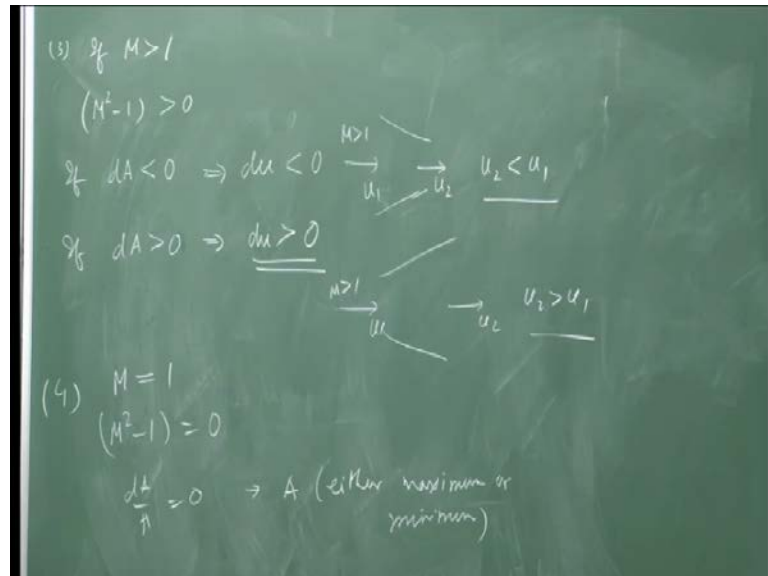 (3) If M > 1
(M²-1) > 0
If dA < 0 ⇒ du < 0 M>1 → u₁ → u₂ u₂ < u₁
If dA > 0 ⇒ du > 0
M>1 → u₁ → u₂ u₂ > u₁
(4) M = 1
(M²-1) = 0
dA/A = 0 → A (either maximum or
minimum)